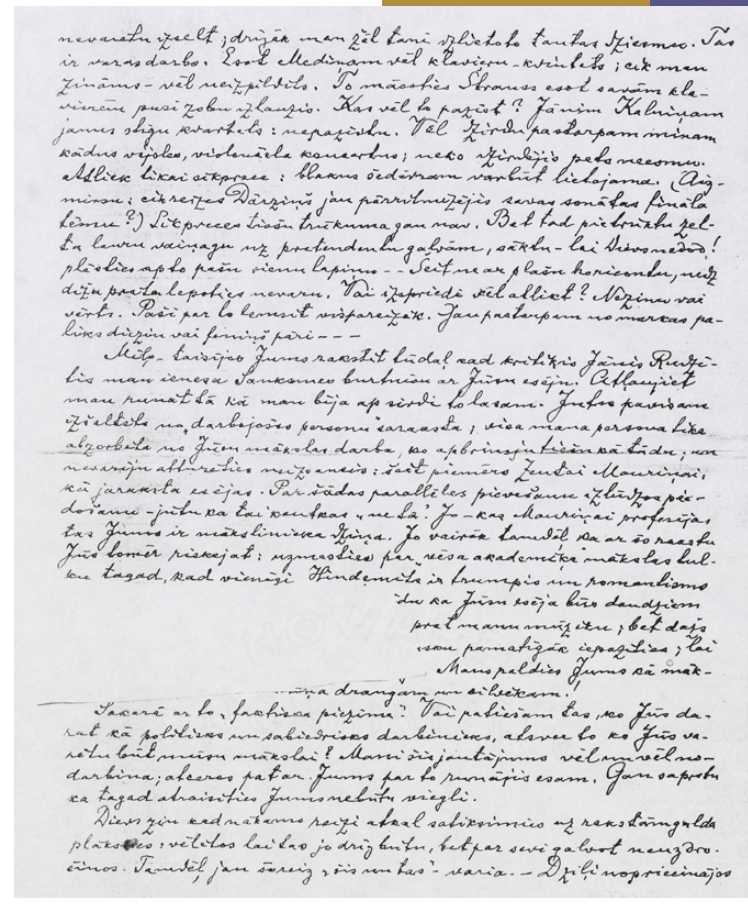 nevarētu izselt; drīzāk man žēl tanī izlietoto tautas dziesmu. Tas
ir varasdarbs. Esot Mediņam vēl klavieru-kvintets; cik man
zināms – vēl neizpildīts. To mācoties Strauss esot savām kla-
vierēm pusi zobu izlauzis. Kas vēl to pazīst? Jānim Kalniņam
jauns stīgu kvartets: nepazīstu. Vēl dzirdu pastarpam minam
kādus vijoles, violončela koncertus; neko dzirdējis pats neesmu.
Atliek likai sīkprece: blakus šedevram varbūt lietojama. (Aiz-
mirsu: cikreizes Dārziņš jau pārritmizējis savas sonātas fināla
tēmu?) Sīkpreces tiešu trūkuma gan nav. Bet tad pietrūktu zel-
ta lauru vaiņagu uz pretendentu galvām, sāktu – lai Dievs nedod!
plēsties ap to pašu vienu lapiņu – – Šeit ne ar plašu horizontu, nedz
dižu prātu lepoties nevaru. Vai izspriedi vēl atlikt? Nezinu vai
vērts. Paši par to lemsit vispareizāk. Jau pastarpam no markas pa-
liks diezin vai feniņš pāri – – –
Mīļo taisījos Jums rakstīt tūdaļ kad kritiķis Jānis Rudzī-
tis man ienesa Sauksmes burtnīcu ar Jūsu eseju. Atļaujiet
man runāt tā kā man bija ap sirdi to lasam. Jutos pavisam
izslēgts no „darbojošos personu" saraksta; visa mana persona tika
absorbēta no Jūsu mākslas darba, ko apbrīnoju tiešu kā tādu; un
nevarēju atturēties neizsaucis: šeit piemērs Zentai Mauriņai,
kā jāraksta esejas. Par šādas paralleles pievešanu izlūdzos pie-
došanu – jūtu ka tai kautkas „ne tā". Jo – kas Mauriņai profesijas
tas Jums ir mākslinieka dziņa. Jo vairāk tamdēļ ka ar šo rakstu
Jūs tomēr riskējat: uzmesties par vēsa akademiķa mākslas tul-
ku tagad, kad vienīgi Hindemits ir trumpis un romantisms
du ka Jūsu eseja būs daudziem
pret manu mūziku; bet dažs
isku pamatīgāk iepazīties; lai
Mans paldies Jums kā māk-
draugam un cilvēkam!
Sakarā ar to „faktiska piezīme": Vai patiešām tas, ko Jūs da-
rat kā politisks un sabiedrisks darbinieks, atsver to ko Jūs va-
rētu būt mūsu mākslai? Mani šis jautājums vēl un vēl no-
darbina; atceros pat ar Jums par to runājis esam. Gan saprotu
ka tagad atraisīties Jums nebūtu viegli.
Dievs zin kad nākamo reizi atkal satiksimies uz rakstāmgalda
plāksnes: vēlētos lai tas jo drīz būtu, bet par sevi galvot neuzdro-
šinos. Tamdēļ jau šoreiz „šis un tas" – varia. – Dziļi nopriecinājos